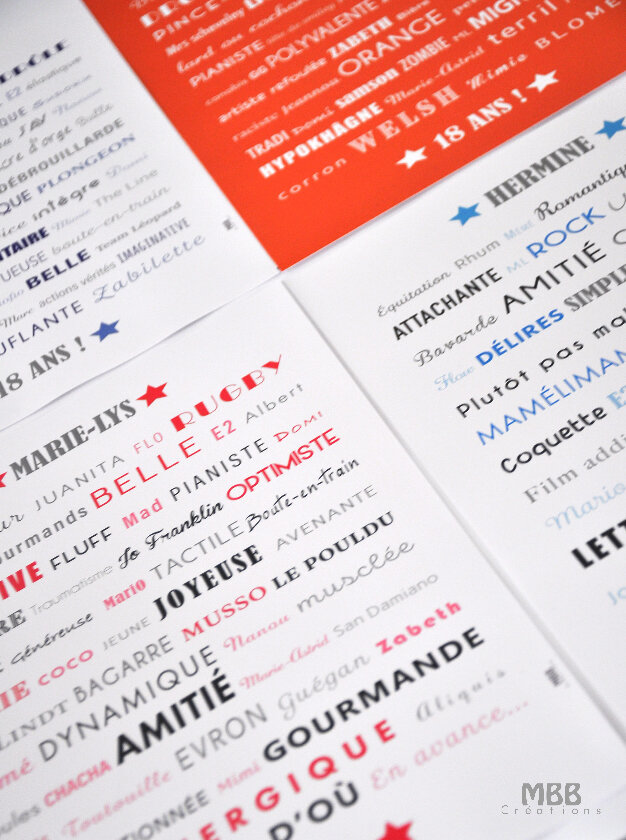 E2 élastique
d'orge Bulle
DÉBROUILLARDE
PLONGEON
intègre Domi
The Line
boute-en-train
BELLE Team Léopard
Marc actions vérités IMAGINATIVE
Zabilette
18 ANS !
PINCE-
Mes scheuming
lard au cochon
PIANISTE
GG POLYVALENTE
artiste refoulée ZABETH
raciste Jeannou ORANGE
TRADI Domi samson ZOMBIE ML MIGN
HYPOKHÂGNE Marie-Astrid terril
corron WELSH Mimie BLOME
18 ANS !
HERMINE
Équitation Rhum Mimi Romantiqu
ATTACHANTE ML ROCK
Bavarde AMITIÉ
Flow DÉLIRES SIMPLE
Plutôt pas mal
MAMÉLIMAN
Coquette E2
Film addi
Mario
LETT
MARIE-LYS
JUANITA FLO RUGBY
ourmands BELLE E2 Albert
IVE FLUFF Mad PIANISTE Domi
Traumatisme Jo Franklin OPTIMISTE
Généreuse Mario TACTILE Boute-en-train
COCO JEUNE JOYEUSE AVENANTE
LINDT BAGARRE MUSSO LE POULDU
DYNAMIQUE Nanou musclée
CHACHA AMITIÉ Marie-Astrid San Damiano
Toutouille EVRON Guégan Zabeth
TIONNÉE Mimi GOURMANDE
ERGIQUE Aliquis
D'OÙ En avance...
MBB
Créations